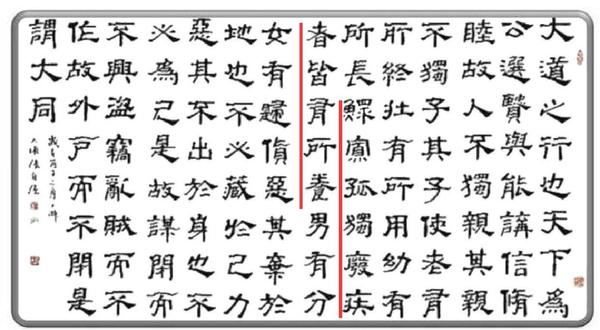 大道之行也天下為
公選賢與能講信脩
睦故人不獨親其親
不獨子其子使老有
所終壯有所用幼有
所長鰥寡孤獨廢疾
者皆有所養男有分
女有歸貨惡其棄於
地也不必藏於己力
惡其不出於身也不
必為己是故謀閉而
不興盜竊亂賊而不
作故外戶而不閉是
謂大同